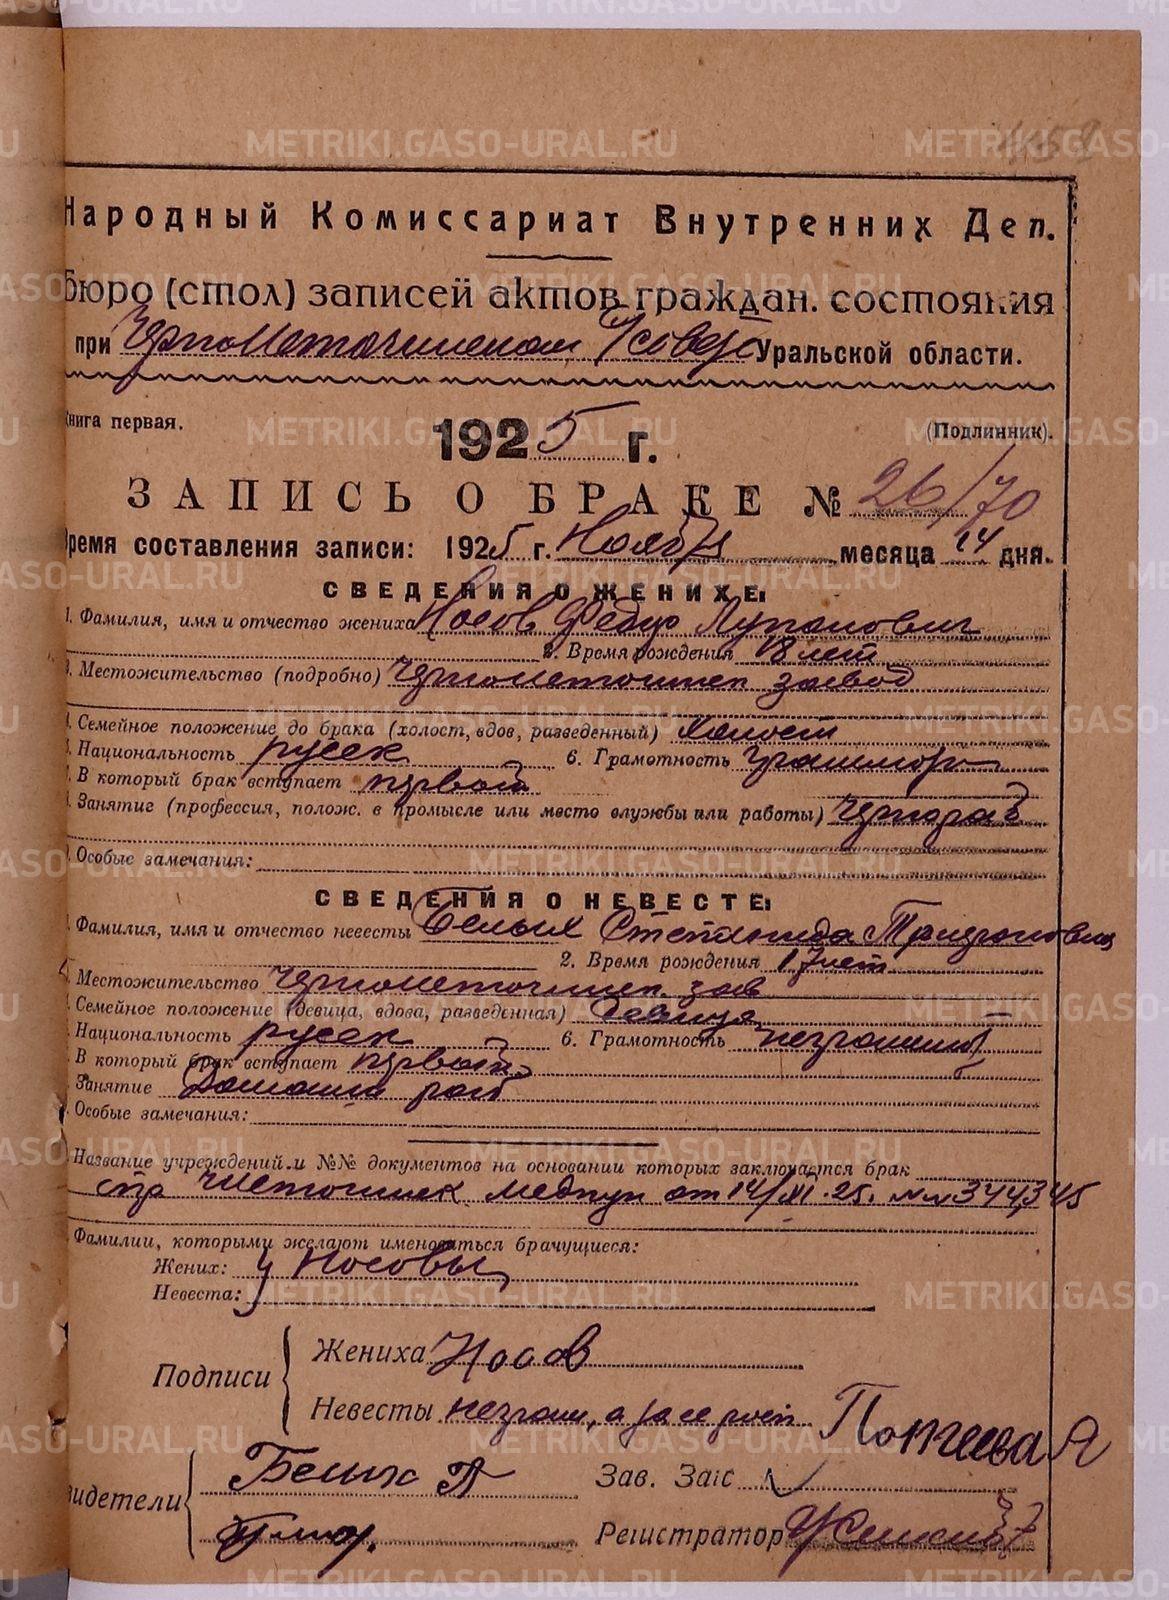 Народный Комиссариат Внутренних Дел.
Бюро (стол) записей актов граждан. состояния
при Черноисточинском Уральской области.
Книга первая.
(Подлинник).
1925 г.
ЗАПИСЬ О БРАКЕ № 26/70
Время составления записи: 1925 г. Ноября месяца 14 дня.
СВЕДЕНИЯ О ЖЕНИХЕ:
1. Фамилия, имя и отчество жениха Носов Федор
2. Время рождения 18 лет
3. Местожительство (подробно) Черноисточинск завод
4. Семейное положение до брака (холост, вдов, разведенный) Холост
5. Национальность русск 6. Грамотность
7. В который брак вступает первый
8. Занятие (профессия, полож. в промысле или место службы или работы) Чернораб
9. Особые замечания:
СВЕДЕНИЯ О НЕВЕСТЕ:
1. Фамилия, имя и отчество невесты Белых Степанида
2. Время рождения 17 лет
Местожительство Черноисточинск. зав
Семейное положение (девица, вдова, разведенная) Девица
Национальность русск 6. Грамотность неграмотн
В который брак вступает первый
Занятие Домашн раб
Особые замечания:
Название учреждений и №№ документов на основании которых заключается брак
от 14/XI.25. 344,345
Фамилии, которыми желают именоваться брачущиеся:
Жених: Носовы
Невеста:
Подписи
Жениха Носов
Невесты неграм, а за ее росп
Свидетели
Белых
Зав. Загс
Регистратор